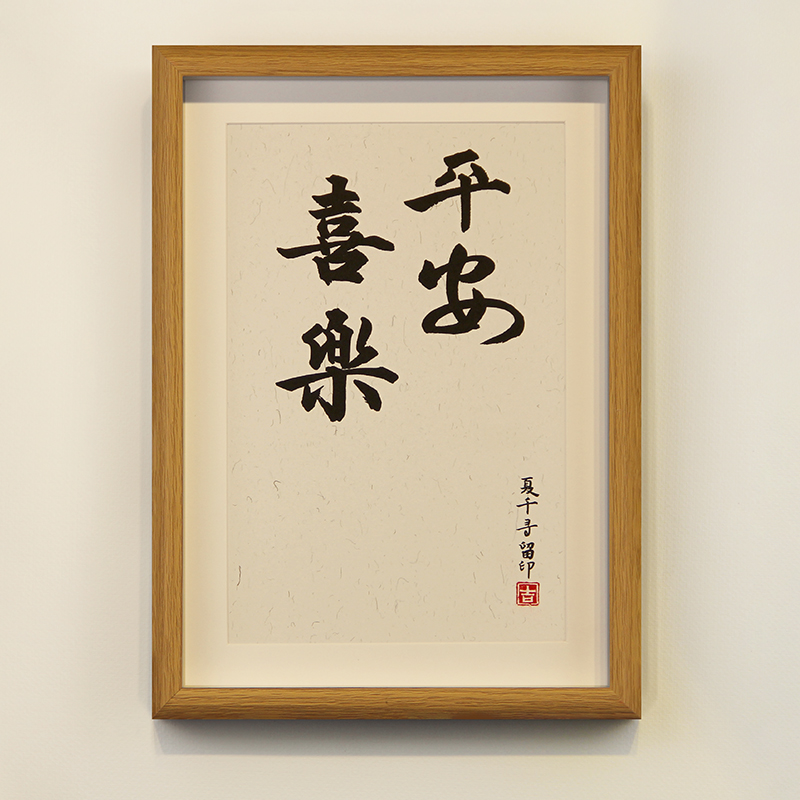 平安
喜樂
夏千寻留印
吉